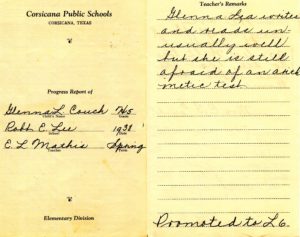 Corsicana Public Schools
CORSICANA, TEXAS
Progress Report of
Glenna L. Couch H5
Child's Name Grade
Robt E. Lee 1938
School
E. L. Mathis Spring
Teacher Term
Elementary Division
Teacher's Remarks
Glenna Lea writes
and reads un-
usually well
but she is still
afraid of an arith
metic test.
Promoted to L6.